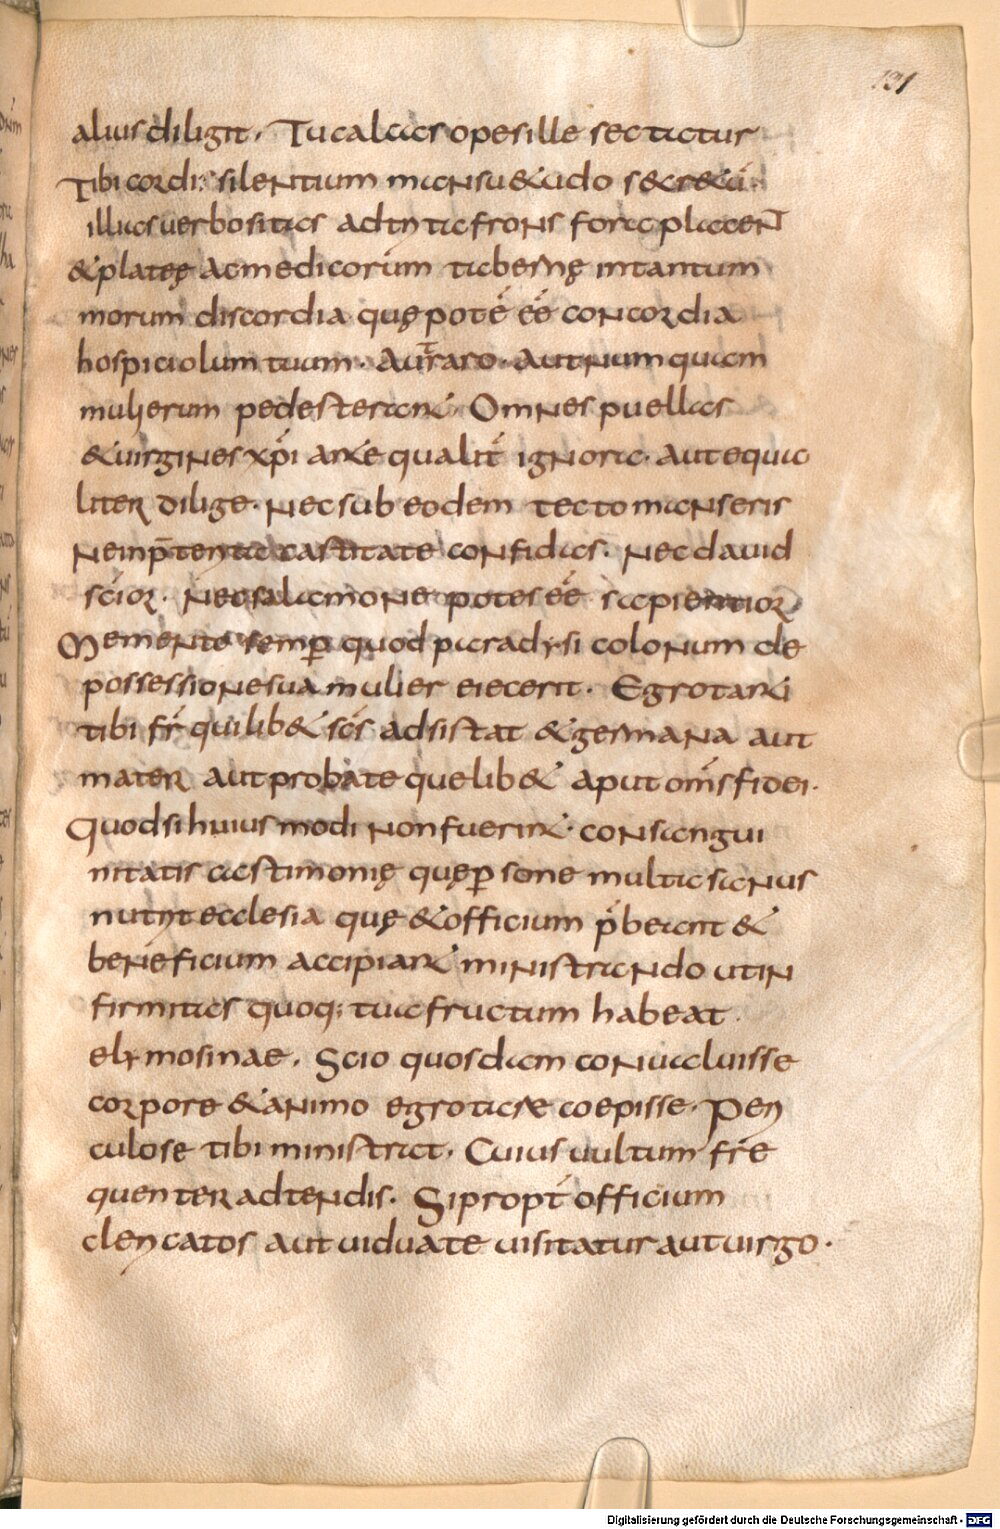 131
alius diligit. Tu calcas opes ille sectatur
Tibi cordi: silentium mansu&udo secr&a:
illius uerbositas adtrita frons fora placent
& platęę ac medicorum tabernę in tantum
morum discordia quę potē ēē concordia
hospiciolum tuum. aut raro. aut numquam
mulierum pedes terant. Omnes puellas
& uirgines xp̄i aut equalit̄ ignora. aut equa
liter dilige. Nec sub eodem tecto manseris
ne in p̄terita castitate confidas. Nec dauid
sc̄ior. nec salamone potes ēē sapientior
Memento semp̱ quod paradysi colonum de
possessione sua mulier eiecerit. Egrotanti
tibi fr̄ quilib& sc̄s adsistat & germana aut
mater aut probate quelib& aput om̄s fidei.
Quod si huiusmodi non fuerint. consangui
nitatis castimonię quę p̱sone multas anus
nutrit ecclesia quę & officium p̄beant &
beneficium accipiant ministrando ut in
firmitas quoq; tua fructum habeat.
elymosinae. Scio quosdam conualuisse
corpore & animo egrotare coepisse. Peri
culose tibi ministrat. Cuius uultum fre
quenter adtendis. Si propt̄ officium
clericatos aut uiduate uisitatur aut uirgo.
Digitalisierung gefördert durch die Deutsche Forschungsgemeinschaft - DFG